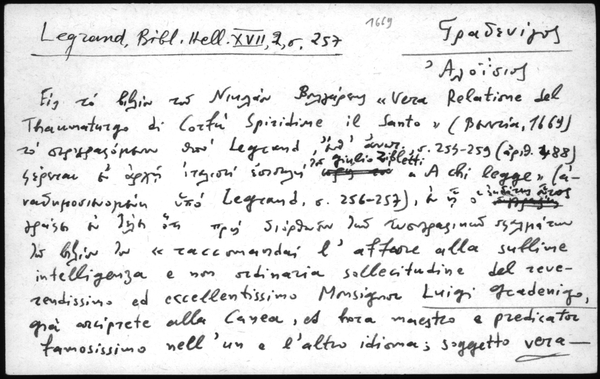 1669
Legrand, Bibl. Hell. XVII, 2, σ. 257
Γραδενίγος
Ἀλοΐσιος
Εἰς τὸ βιβλίον τοῦ Νικολάου Βουλγάρεως «Vera Relatione del
Thaumaturgo di Corfù Spiridione il Santo» (Βενετία, 1669)
τὸ περιγραφόμενον ὑπὸ Legrand, σ. 255-259 (ἀριθ. 488)
φέρεται ἐν ἀρχῇ ἰταλιστὶ ἐπιστολὴ τοῦ Giulio «A chi legge» (ἀ-
ναδημοσιευομένη ὑπὸ Legrand, σ. 256-257), ἐν ᾗ ὁ
γράφει ὅτι διόρθωσιν τῶν τυπογραφικῶν σφαλμάτων
τοῦ βιβλίου «raccomandai l'affare alla sublime
intelligenza e non ordinaria sollecitudine del reve-
rendissimo ed eccellentissimo Monsignor Luigi Gradenigo,
già arciprete alla Canea, et hora maestro e predicator
famosissimo nell'un e l'altro idioma; soggetto vera-